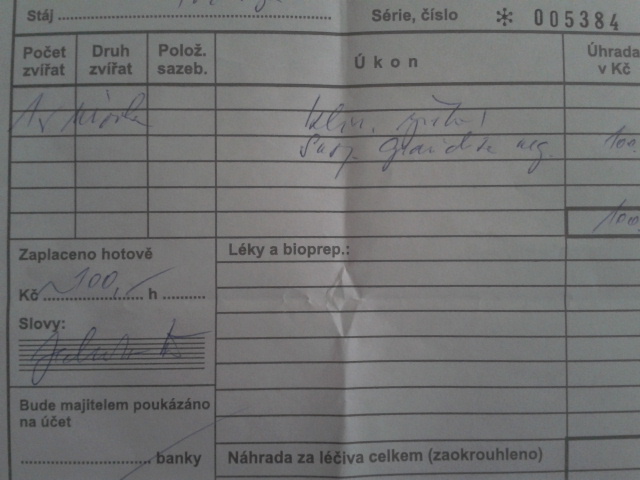 Stáj
Série, číslo * 005384
Počet zvířat
Druh zvířat
Polož. sazeb.
Úkon
Úhrada v Kč
1x
klin.
100,
100,
Zaplaceno hotově
Kč 100,- h
Slovy:
Léky a bioprep.:
Bude majitelem poukázáno
na účet
banky
Náhrada za léčiva celkem (zaokrouhleno)